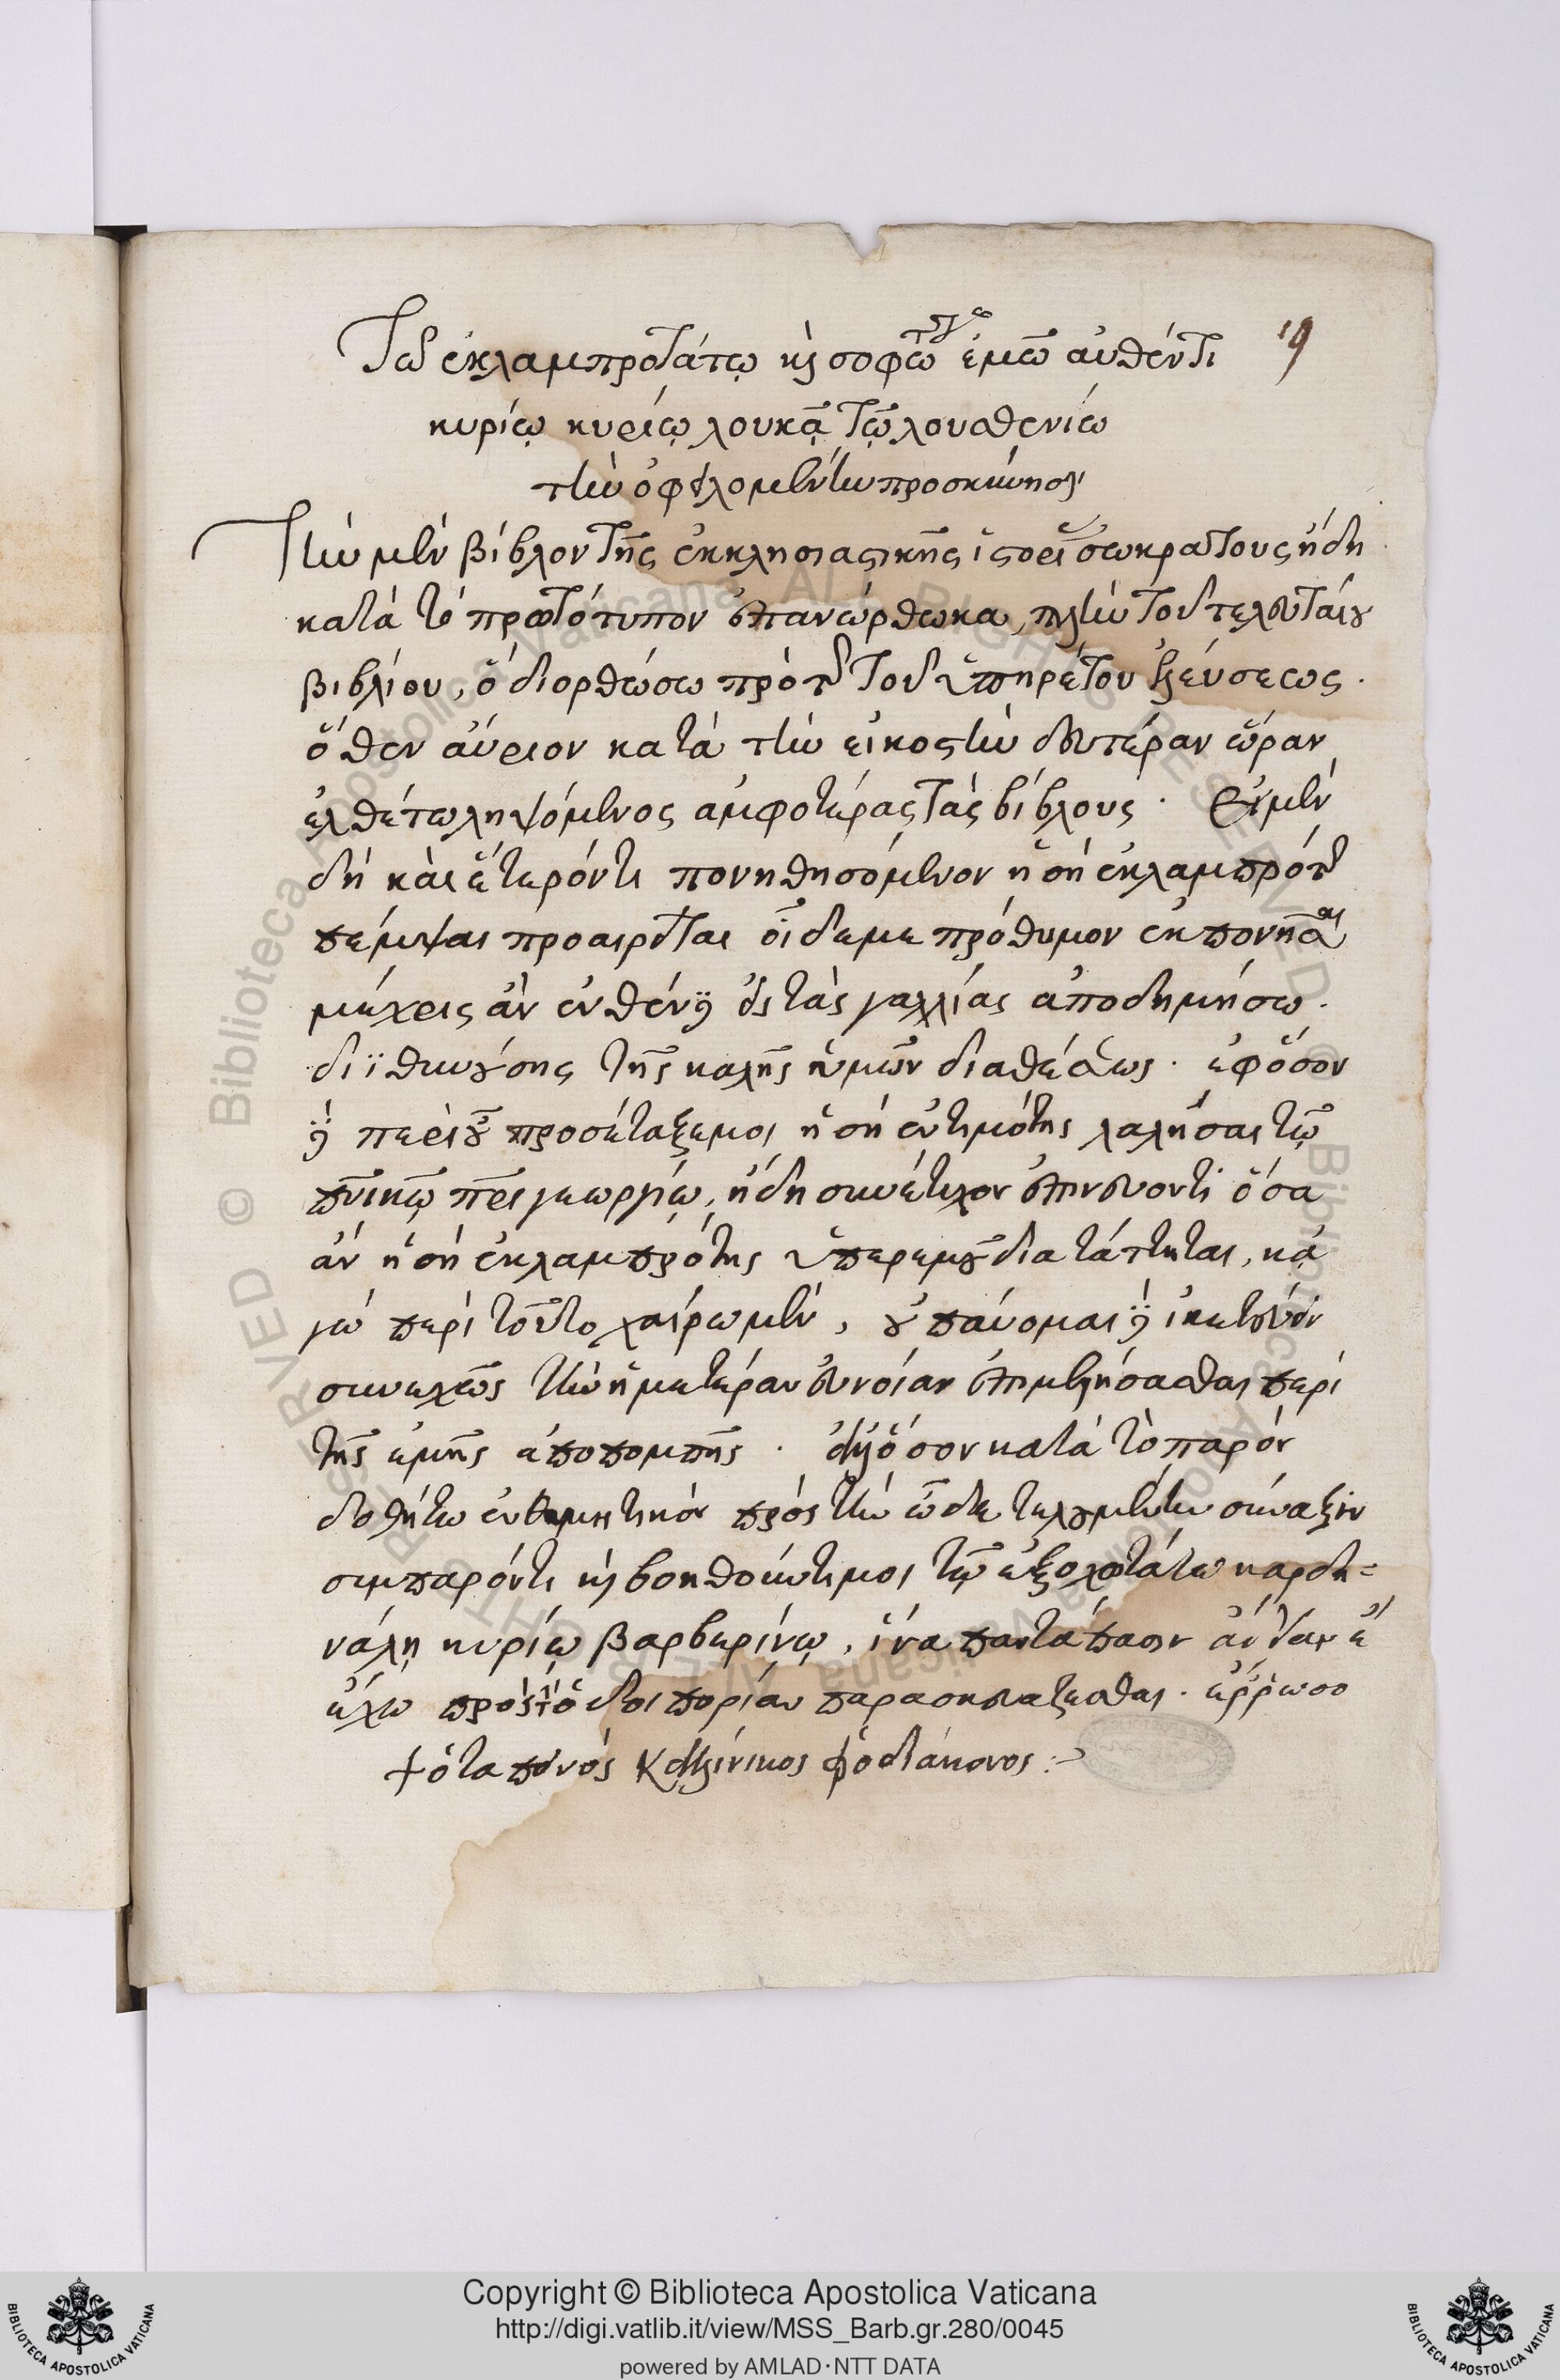 Τῶ ἐκλαμπροτάτῳ κỳ σοφῶ ἐμῶ αὐθέντι 19
κυρίῳ κυρίῳ λουκᾷ τῷ λουσθενίω
τὴν ὀφειλομένην προσκύνησιν
Τὴν μὲν βίβλον τῆς ἐκκλησιαστικῆς ἱστορί σωκράτους ἤδη
κατὰ τὸ πρωτότυπον ἐπανώρθωκα, πλὴν τοῦ τελευταίου
βιβλίου, ὃ διορθώσω πρὸ τ τοῦ ὑπηρέτου ἐλεύσεως.
ὅθεν αὔριον κατὰ τὴν εἰκοστὴν δευτέραν ὥραν
ἐλθέτω ληψόμενος ἀμφοτέρας τὰς βίβλους. Εἰ μὲν
δὴ καὶ ἕτερόν τι πονηθησόμενον ἡ σὴ ἐκλαμπρότ
πέμψαι προαιρεῖται οἶδε με πρόθυμον ἐκπονῆσαι
μέχρις ἂν ἐνθένδε εἰς τὰς γαλλίας ἀποδημήσω.
τῆς καλῆς ὑμῶν διαθέσεως. ἐφόσον
δὲ περὶ οὗ προσέταξε μοι ἡ σὴ ἐντιμότης λαλῆσαι τῷ
πνικῷ πρι γεωργίῳ, ἤδη συνέτυχον ἐπινεύοντι ὅσα
ἂν ἡ σὴ ἐκλαμπρότης ὑπὲρ ἐμοῦ διατάττηται, κᾀ
γὼ περὶ τοῦτο χαίρω μὲν, οὐ παύομαι δὲ ἱκετεύειν
συνεχῶς τὴν ἡμετέραν εὔνοιαν ἐπιμελήσασθαι περὶ
τῆς ἐμῆς ἀποπομπῆς. ἀλλ' ὅσον κατὰ τὸ παρόν
δοθήτω ἐνθυμητικὸν πρὸς τὴν ὧδε τελουμένην σύναξιν
συμπαρόντι κỳ βοηθοῦντι μοι τῷ ἐξοχωτάτω καρδη=
νάλῃ κυρίῳ βαρβερίνῳ, ἵνα παντάπασιν
ἔχω πρὸς τ ὁδοιπορίαν παρασκευάζεσθαι. ἔρρωσο
+ ὁ ταπεινός Καλλίνικος ἱεροδιάκονος :~
Copyright © Biblioteca Apostolica Vaticana
http://digi.vatlib.it/view/MSS_Barb.gr.280/0045
powered by AMLAD·NTT DATA
BIBLIOTECA APOSTOLICA VATICANA
BIBLIOTECA APOSTOLICA VATICANA